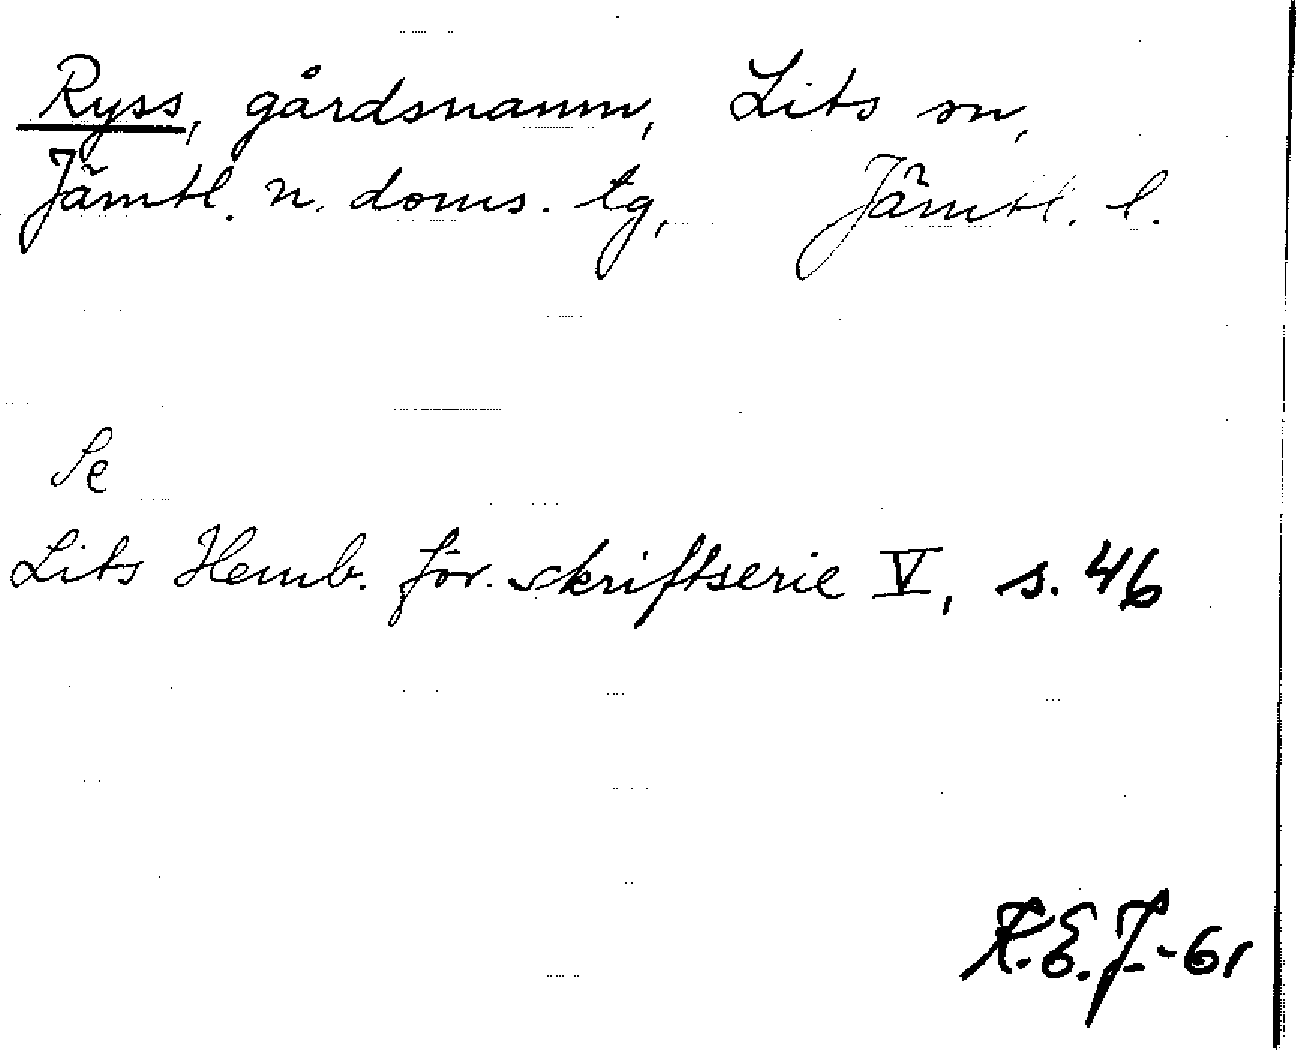 Ryss, gårdsnamn, Lits sn,
Jämtl. n. doms. tg, Jämtl. l.
Se
Lits Hemb. för. skriftserie V, s. 46
K.E.J.-61